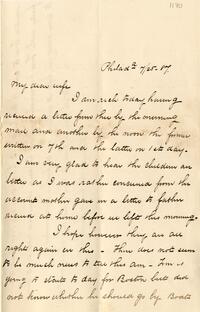 1190
Philada 7/25. 87.
My dear wife
I am rich today having
received a letter from thee by the morning
mail and another by the noon the former
written on 7th and the latter on 1st day.
I am very glad to hear the children are
better as I was rather concerned from the
account mother gave in a letter to father
received at home before we left this morning.
I hope however they are all
right again in this - There does not seem
to be much news to tell thee am -
going to start to day for Boston but did
not know whether he should go by Boat